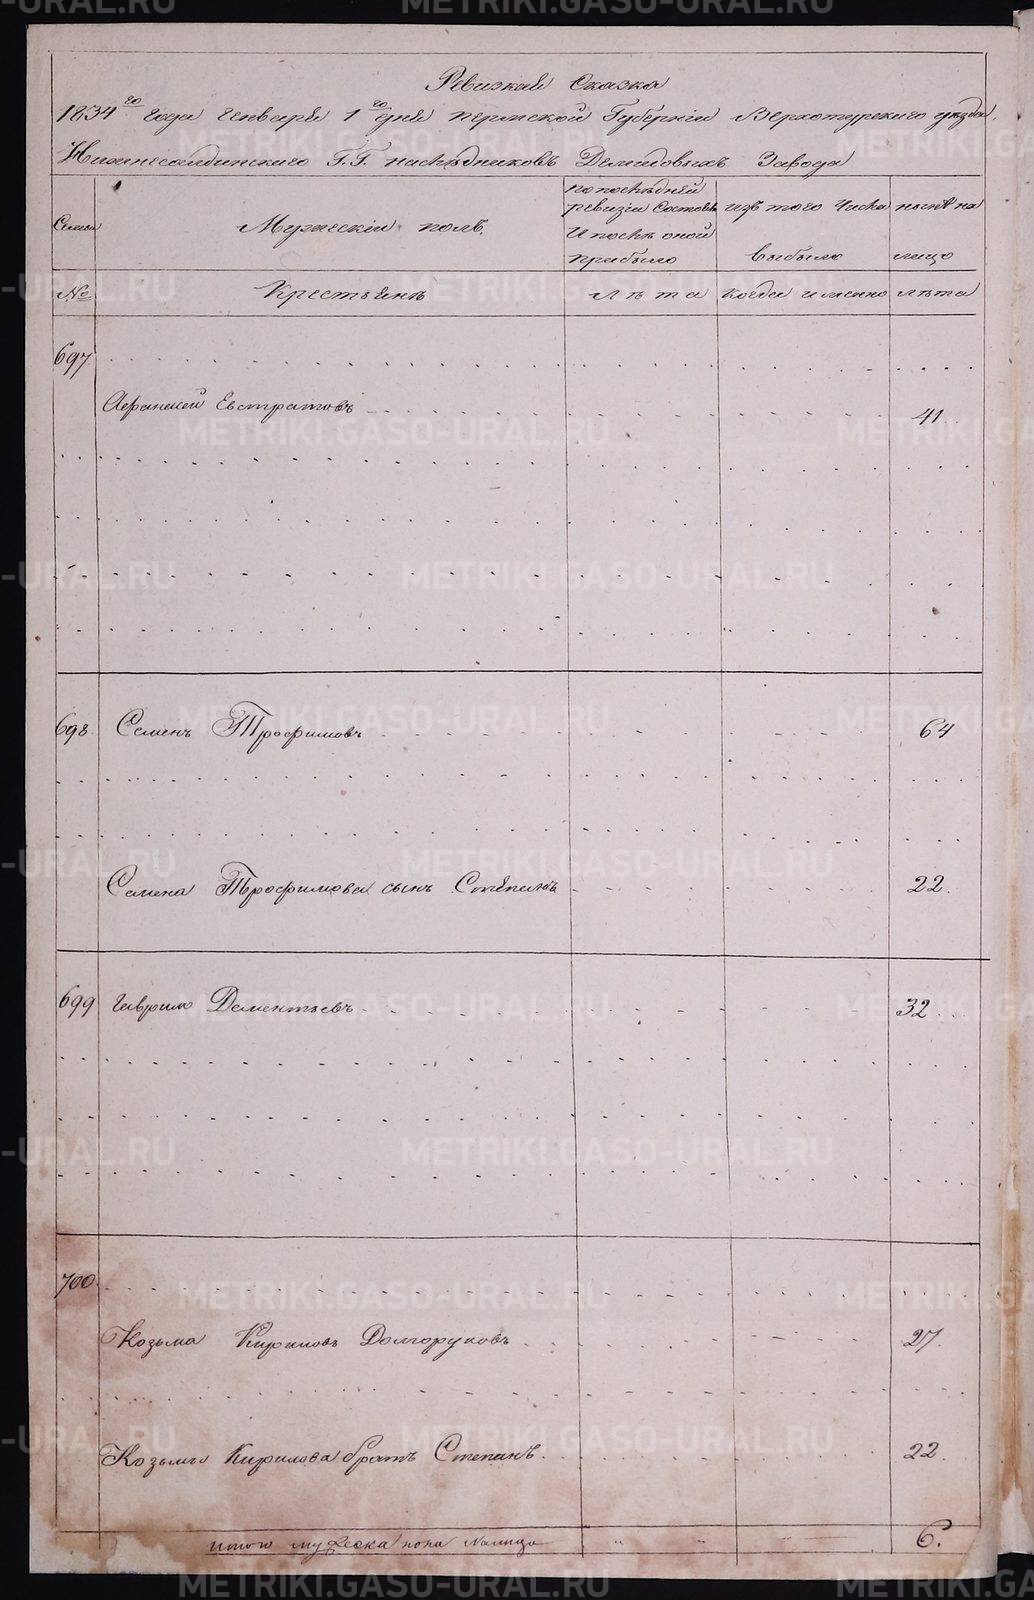 Ревизкая Сказка
1834го года Генваря 1го дня Пермской Губернiи Верхотурскаго уезда
Нижнесалдинскаго Г.Г. наследниковъ Демидовыхъ Завода
Семьи
Мужескiй полъ.
по последней ревизiи Состояло И после оной прибыло
изъ того Числа выбыло
ныне на лицо
№
Крестьянъ
лета
Когда именно
лета
697
Афанасей Евстратовъ 41
698 Семенъ Трофимовъ 64
Семена Трофимова сынъ Степанъ 22.
699 Гаврило Дементьевъ 32
700.
Козьма Кириловъ Долгоруковъ 27.
Козьмы Кирилова братъ Степанъ. 22.
Итого мужеска пола налицо 6.
METRIKI.GASO-URAL.RU